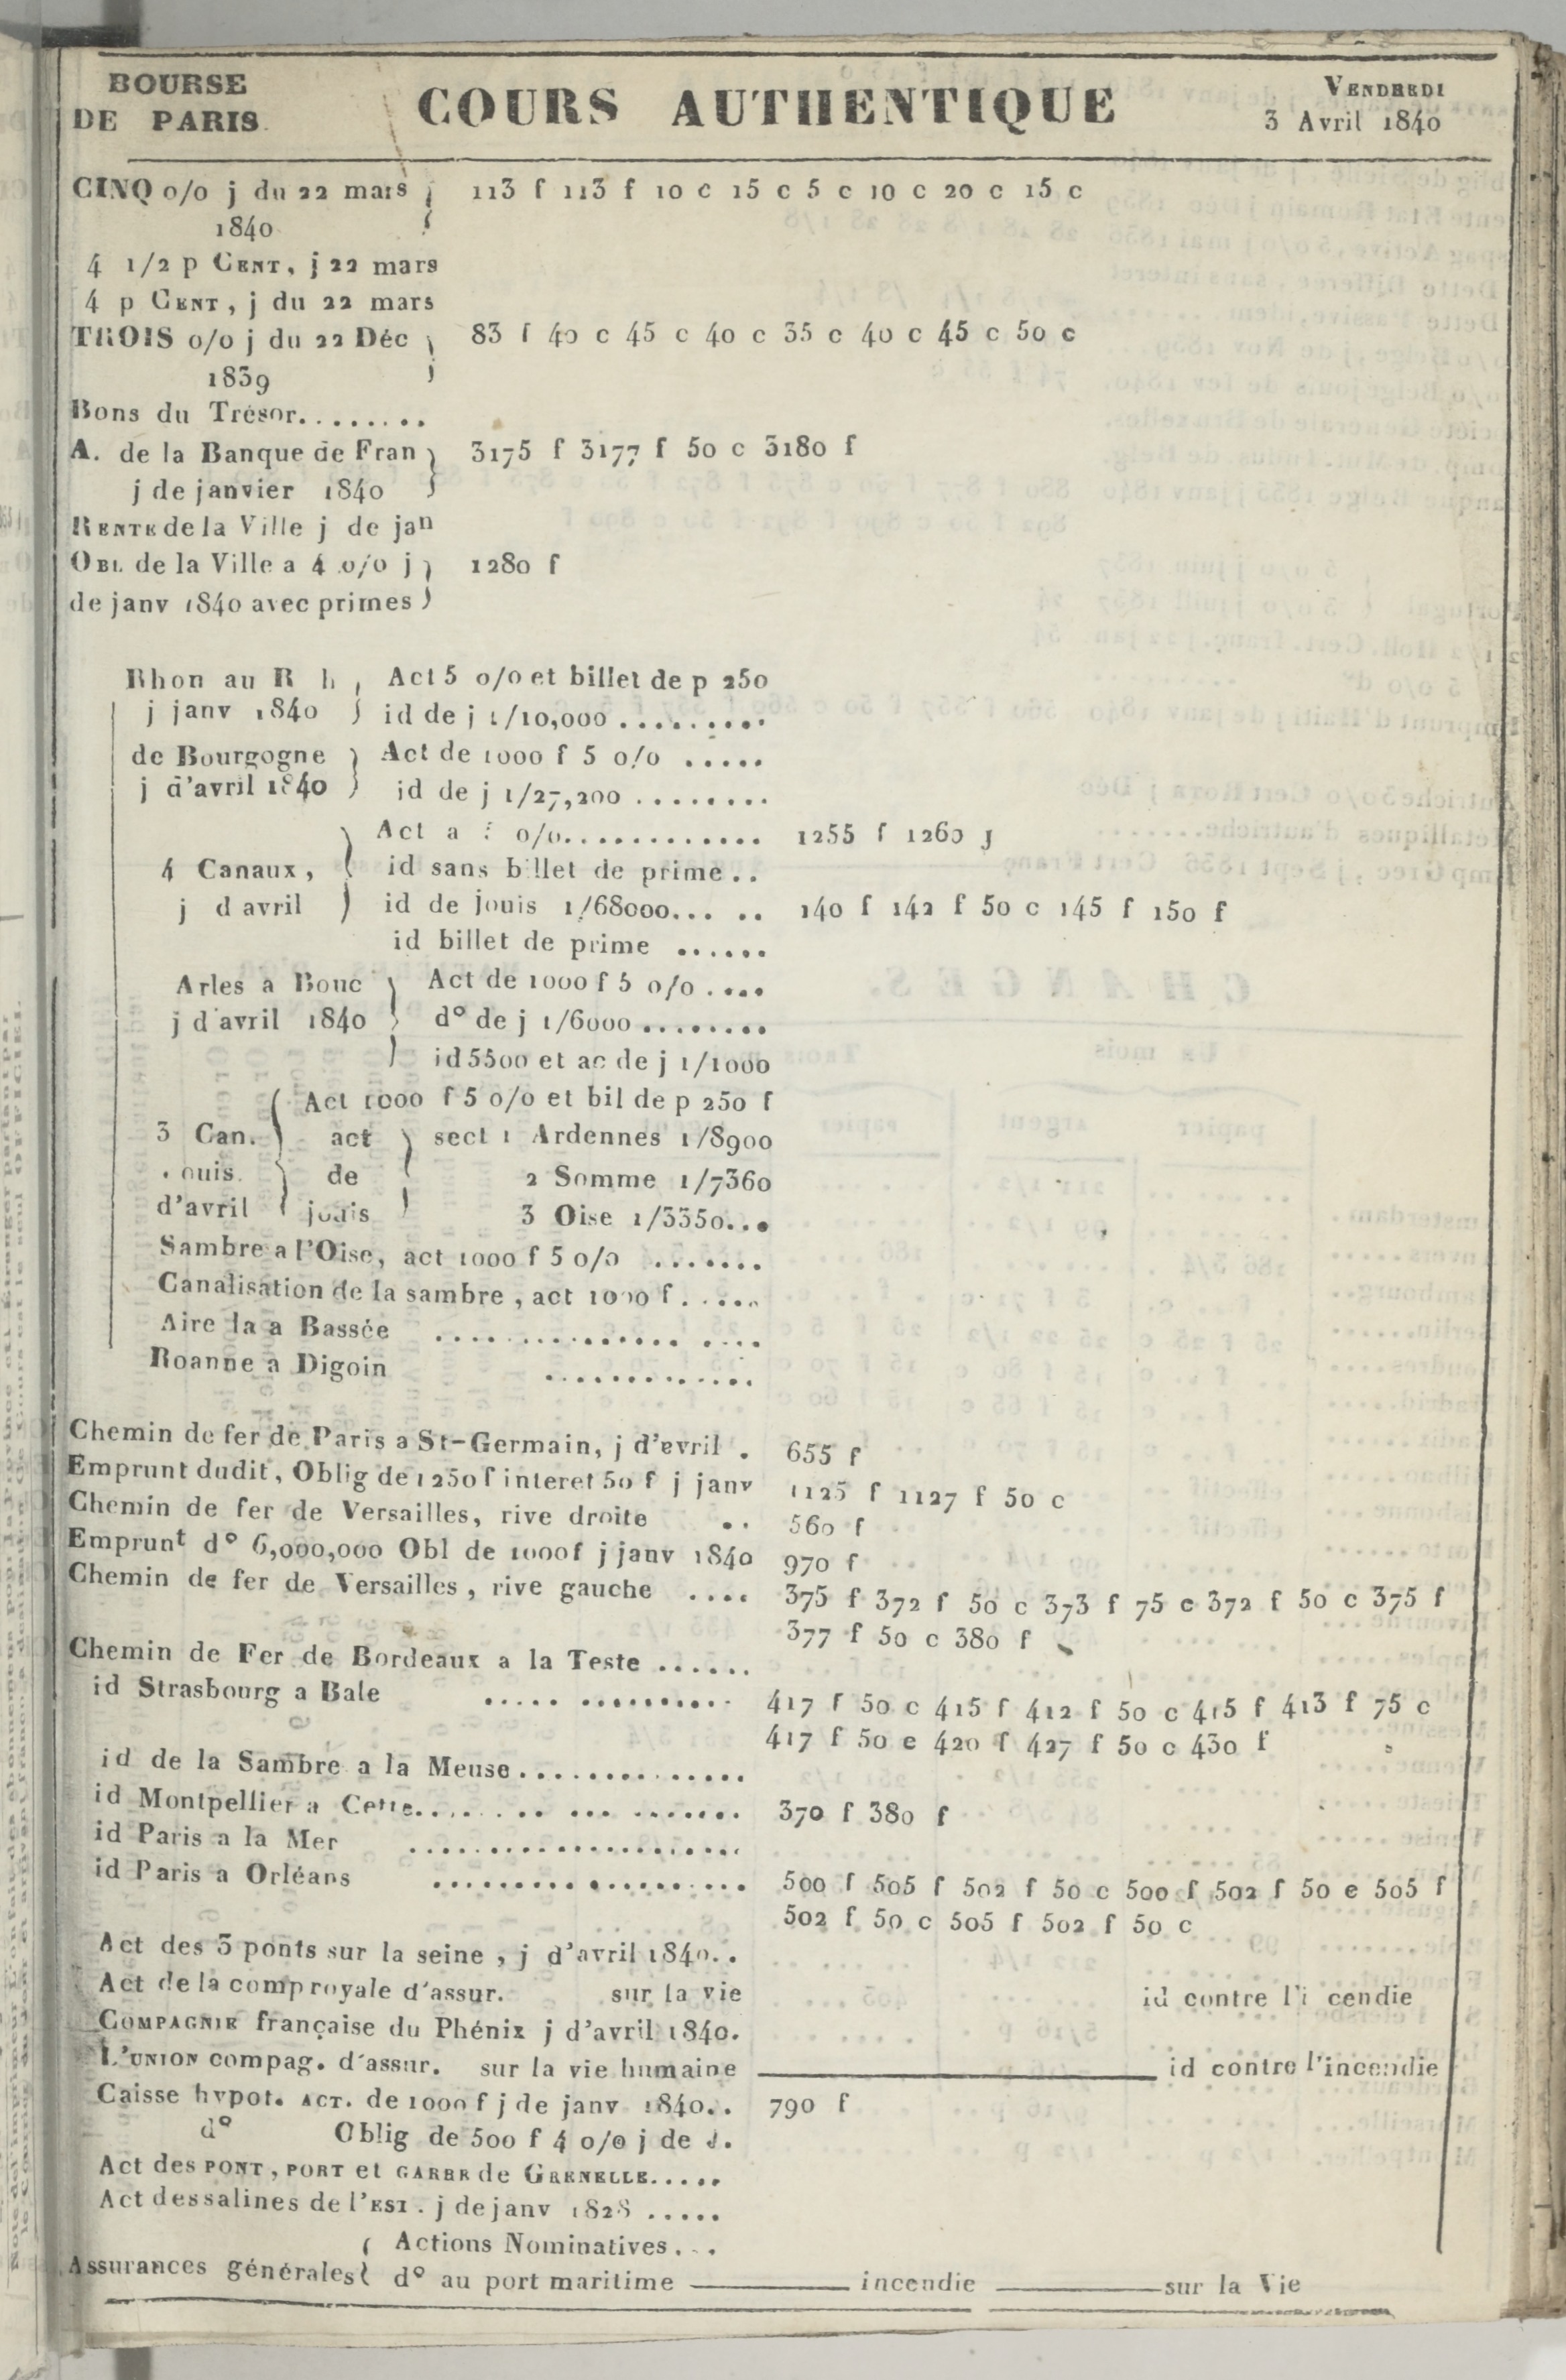 BOURSE
DE PARIS
COURS AUTHENTIQUE
VENDREDI
3 Avril 1840
CINQ o/o j du 22 mars 113 f 113 f 10 c 15 c 5 c 10 c 20 c 15 c
1840
4 1/2 p CENT, j 22 mars
4 p CENT, j du 22 mars
TROIS o/o j du 22 Déc 83 f 40 c 45 c 40 c 35 c 40 c 45 c 50 c
1839
Bons du Trésor........
A. de la Banque de Fran 3175 f 3177 f 50 c 3180 f
j de janvier 1840
RENTE de la Ville j de jan
OBL de la Ville a 4 o/o j 1280 f
de janv 1840 avec primes
Rhon au R h Act 5 o/o et billet de p 250
j janv 1840 id de j 1/10,000 .........
de Bourgogne Act de 1000 f 5 o/o .....
j d'avril 1840 id de j 1/27,200 ........
Act a o/o............ 1255 f 1260 j
4 Canaux, id sans billet de prime ..
j d avril id de jouis 1/68000... .. 140 f 142 f 50 c 145 f 150 f
id billet de prime ......
Arles a Bouc Act de 1000 f 5 o/o ....
j d'avril 1840 d° de j 1/6000 ........
id 5500 et ac de j 1/1000
Act 1000 f 5 o/o et bil de p 250 f
3 Can. act sect 1 Ardennes 1/8900
ouis. de 2 Somme 1/7360
d'avril jouis 3 Oise 1/3350...
Sambre a l'Oise, act 1000 f 5 o/o .......
Canalisation de la sambre, act 1000 f......
Aire la a Bassée .................. ....
Roanne a Digoin .............
Chemin de fer de Paris a St-Germain, j d'evril . 655 f
Emprunt dudit, Oblig de 1250 f interet 50 f j janv 1125 f 1127 f 50 c
Chemin de fer de Versailles, rive droite .. 560 f
Emprunt d° 6,000,000 Obl de 1000f j janv 1840 970 f
Chemin de fer de Versailles, rive gauche .... 375 f 372 f 50 c 373 f 75 c 372 f 50 c 375 f
377 f 50 c 380 f
Chemin de Fer de Bordeaux a la Teste ......
id Strasbourg a Bale ..... .......... 417 f 50 c 415 f 412 f 50 c 415 f 413 f 75 c
417 f 50 e 420 f 427 f 50 c 430 f
id de la Sambre a la Meuse..............
id Montpellier a Cette...... .. ... ....... 370 f 380 f
id Paris a la Mer ....................
id Paris a Orléans ................... 500 f 505 f 502 f 50 c 500 f 502 f 50 e 505 f
502 f 50 c 505 f 502 f 50 c
Act des 3 ponts sur la seine, j d'avril 1840..
Act de la comp royale d'assur. sur la vie id contre l'i cendie
COMPAGNIE française du Phénix j d'avril 1840.
L'UNION compag. d'assur. sur la vie humaine id contre l'incendie
Caisse hypot. ACT. de 1000 f j de janv 1840.. 790 f
d° Oblig de 500 f 4 o/o j de
Act des PONT, PORT et GARE de GRENELLE.....
Act des salines de l'EST. j de janv 1828 .....
Actions Nominatives...
Assurances générales d° au port maritime incendie sur la Vie